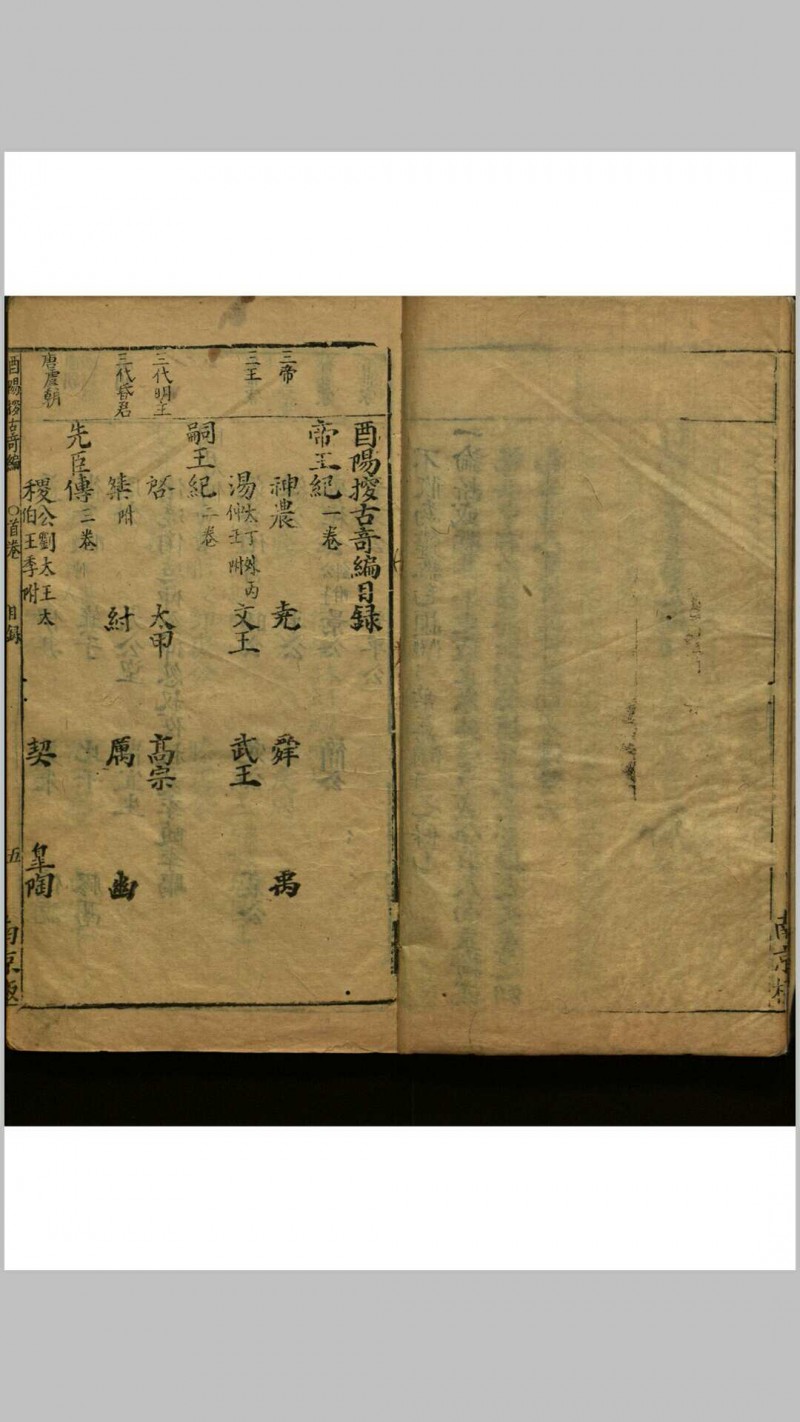 酉陽搜古奇編目録
帝王紀一卷
三帝 神農 堯 舜 禹
三王 湯太丁外丙仲壬附 文王 武王
嗣王紀二卷
三代明主 啓 太甲 高宗
三代昏君 桀附 紂 厲 幽
先臣傳三卷
唐虞朝 稷公劉太王太伯王季附 契 皋陶
酉陽搜古奇編 〇首卷 目録 五